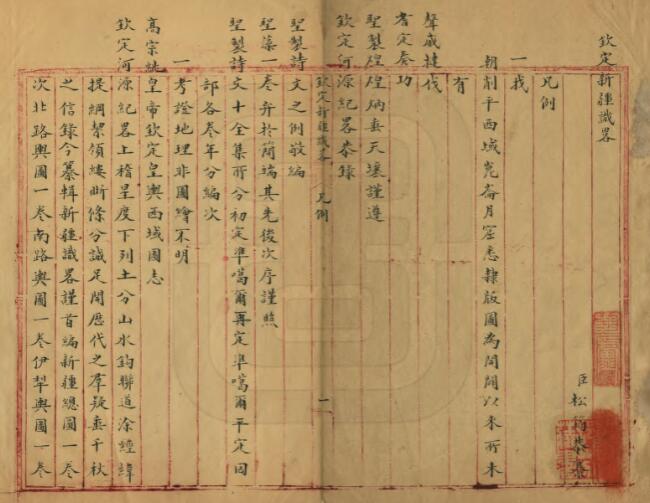 欽定新疆識略
臣松筠恭纂
凡例
一我
朝削平西域崑崙月窟悉隸版圖為開闢以來所未
有
聲威撻伐
耆定奏功
聖製煌煌炳垂天壤謹遵
欽定河源紀畧恭錄
欽定新疆識畧 凡例 一
聖製詩文之例敬編
聖藻一卷弁於簡端其先後次序謹照
聖製詩文十全集所分初定準噶爾再定準噶爾平定回
部各卷年分編次
一考證地理非圖繪不明
高宗純皇帝欽定皇輿西域圖志
欽定河源紀畧上稽星度下列土分山水鈎聯道涂經緯
提綱挈領縷晰條分誠足開歷代之羣疑垂千秋
之信錄今纂輯新疆識畧謹首編新疆總圖一卷
次北路輿圖一卷南路輿圖一卷伊犂輿圖一卷